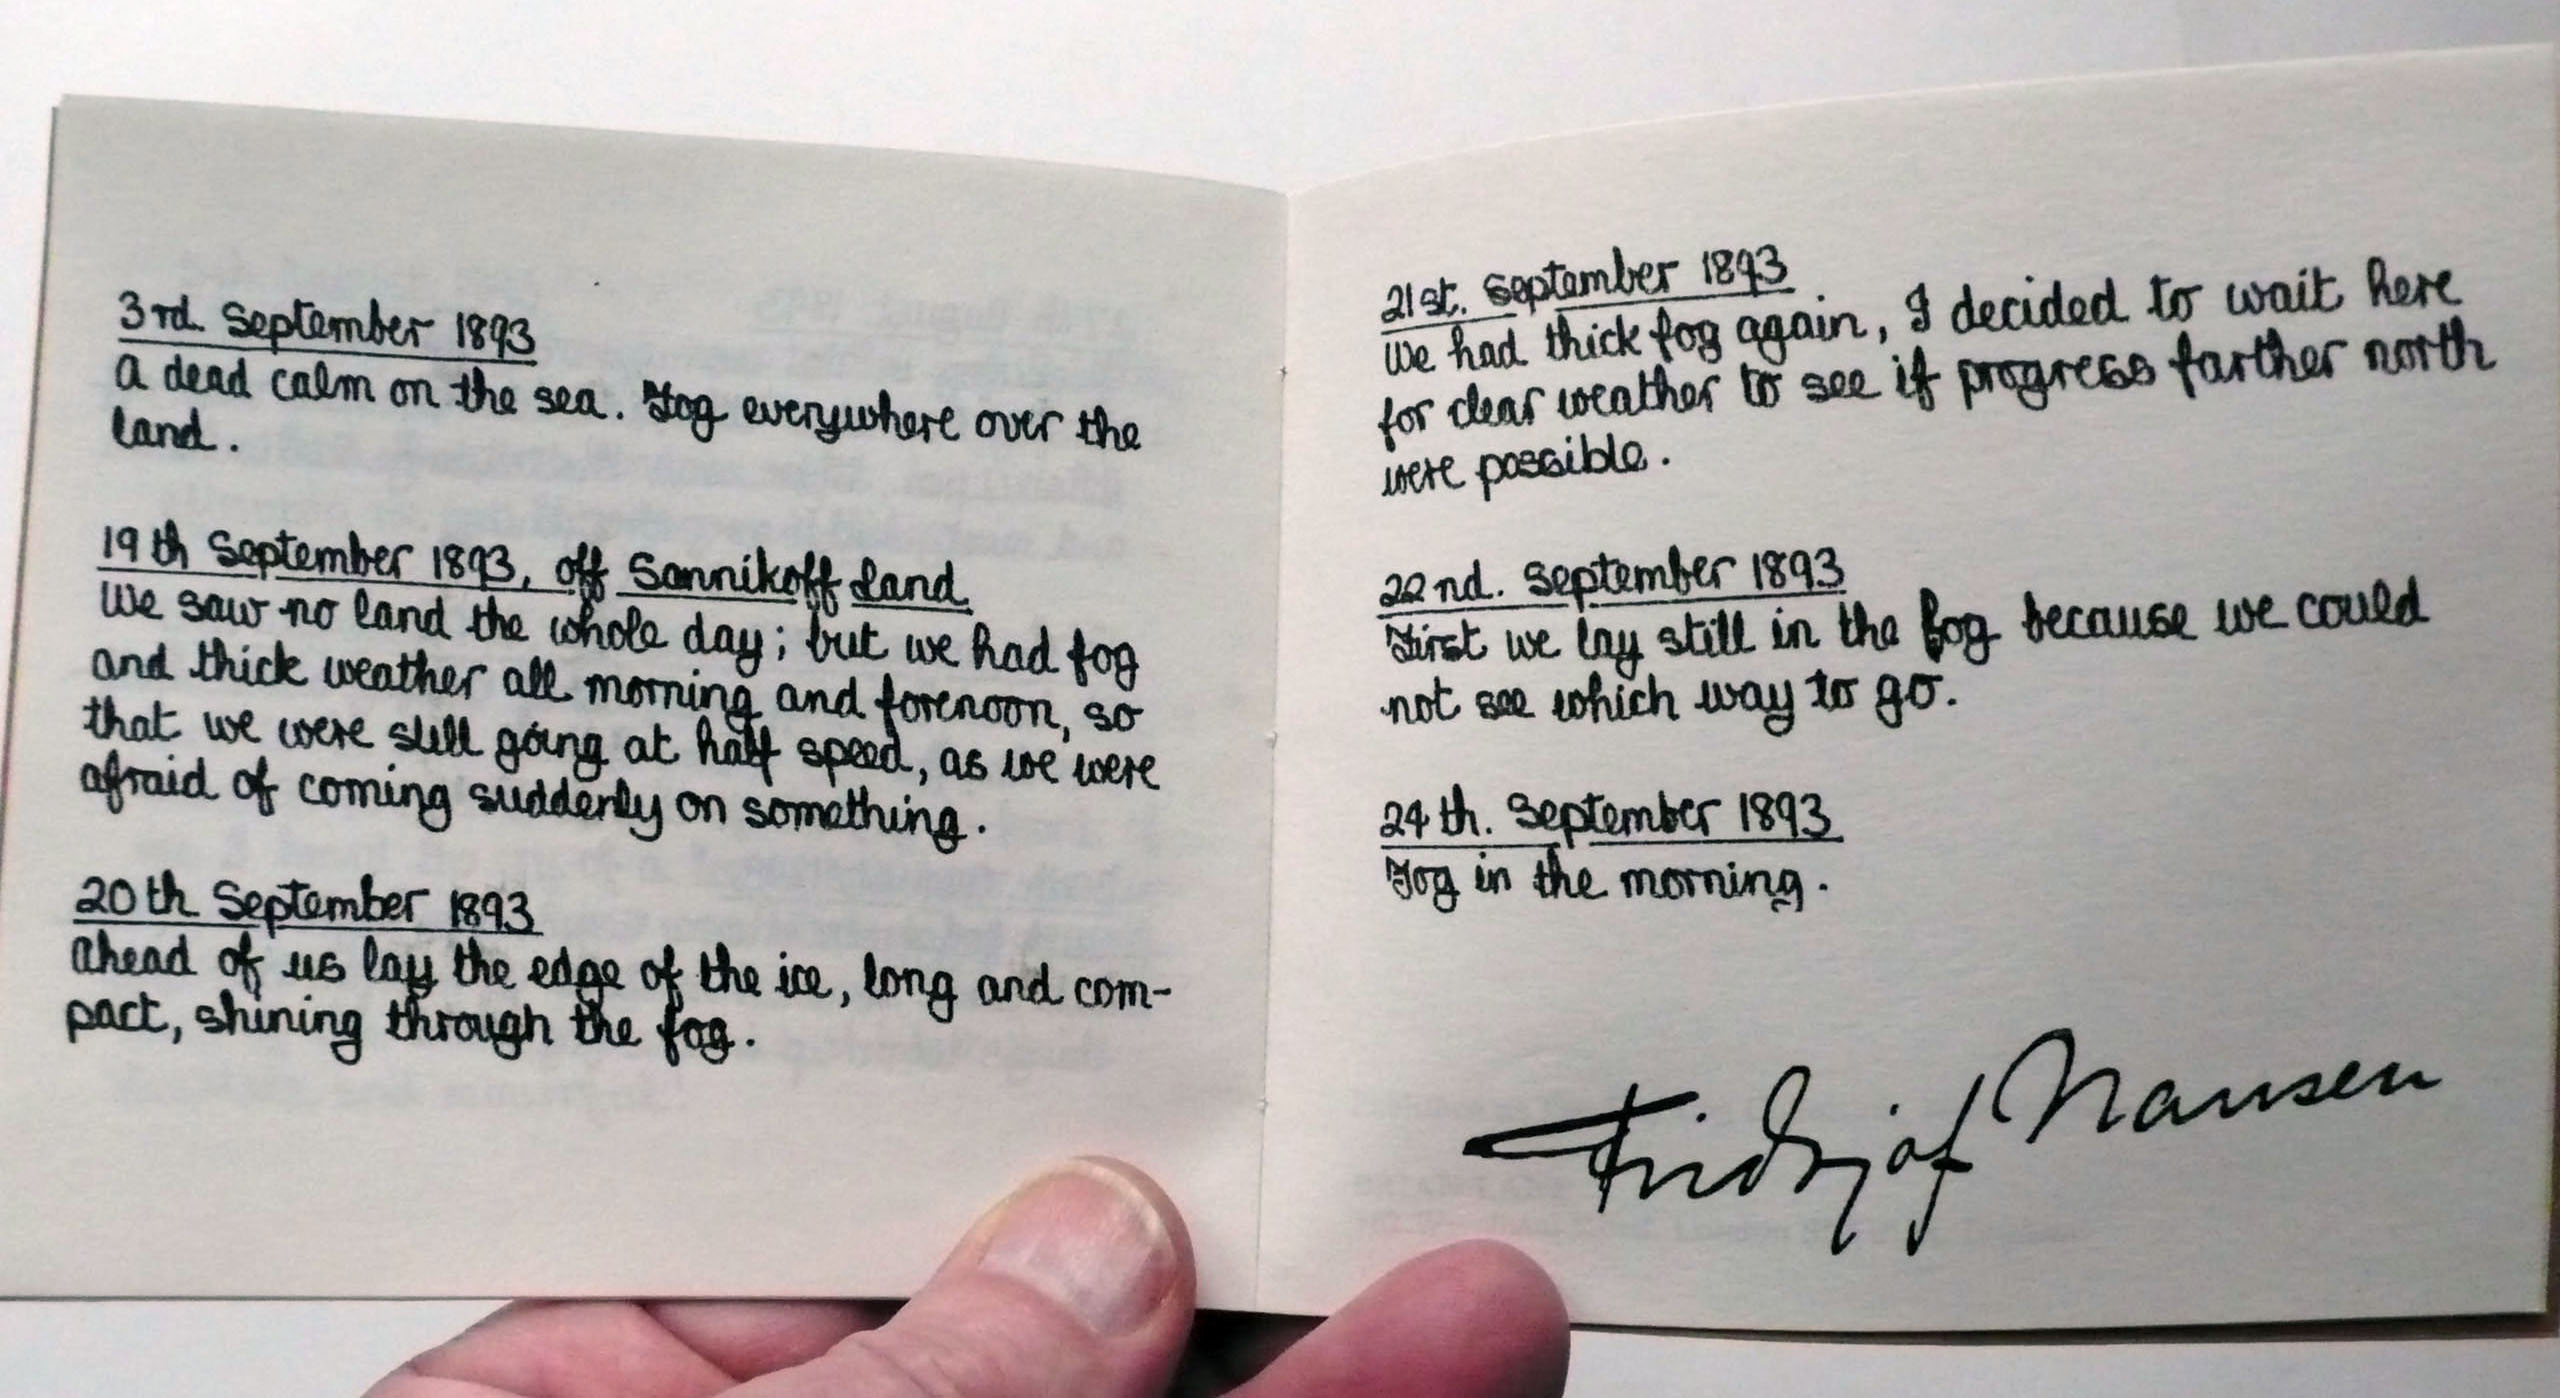 3rd. September 1893
A dead calm on the sea. Fog everywhere over the
land.
19th September 1893, off Sannikoff Land
We saw no land the whole day; but we had fog
and thick weather all morning and forenoon, so
that we were still going at half speed, as we were
afraid of coming suddenly on something.
20th September 1893
Ahead of us lay the edge of the ice, long and com-
pact, shining through the fog.
21st. September 1893
We had thick fog again, I decided to wait here
for clear weather to see if progress farther north
were possible.
22nd. September 1893
First we lay still in the fog because we could
not see which way to go.
24th. September 1893
Fog in the morning.
Fridtjof Nansen